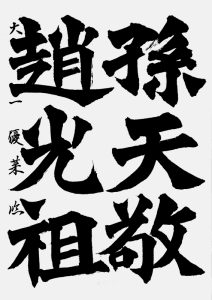 孫天敬
趙光祖
大一 優菜 臨